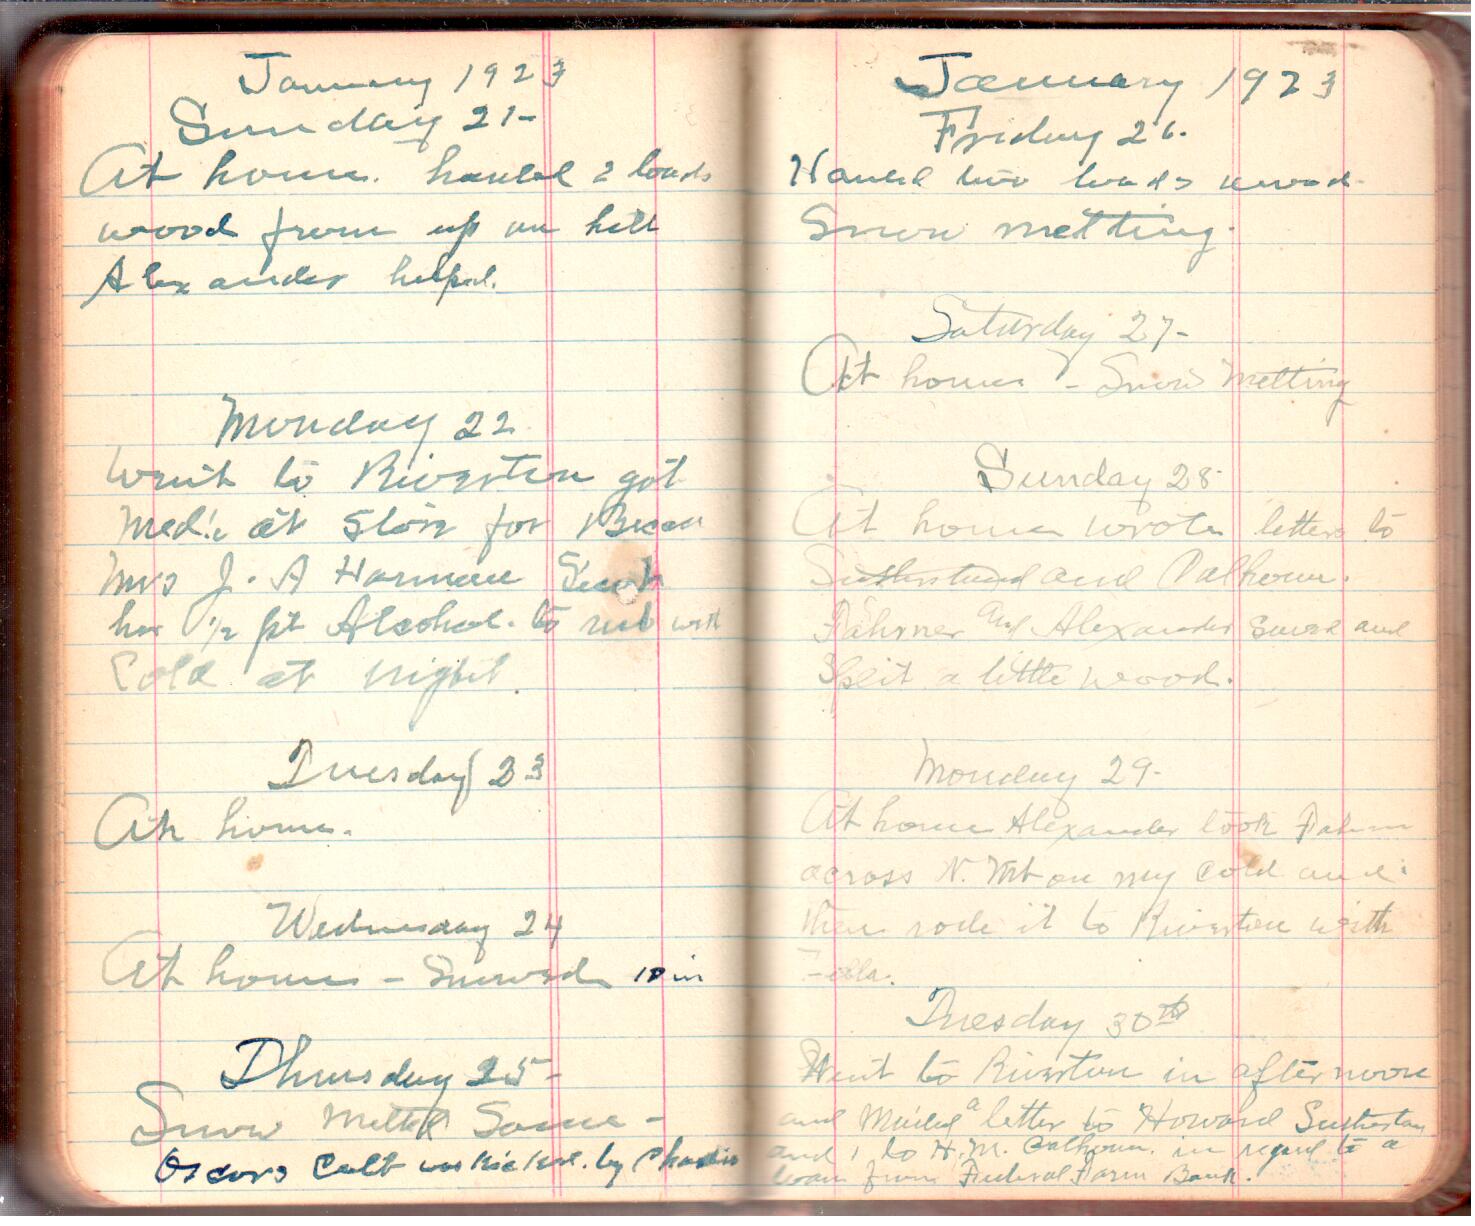 January 1923
Sunday 21-
At home. hauled 2 loads
wood from up on hill
Alexander helped.
Monday 22
Went to Riverton got
at Store for
Mrs J. A Harman
her 1/2 pt Alcohol. to rub with
Cold at night.
Tuesday 23
At home.
Wednesday 24
At home - Snowed 10 in
Thursday 25-
Snow Melted Some -
Oscars Colt was kicked. by Charlie
January 1923
Friday 26.
Hauled two loads wood.
Snow melting.
Saturday 27-
At home - Snow Melting
Sunday 28
At home wrote letters to
Sutherland and Calhoun.
Fahrner and Alexander sawed and
Split a little wood.
Monday 29-
At home Alexander took
across N. Mt on my Colt and
then rode it to Riverton with
Tuesday 30th
Went to Riverton in afternoon
and Mailed a letter to Howard Sutherland
and 1 to H. M. Calhoun. in regard to a
loan from Federal Farm Bank.